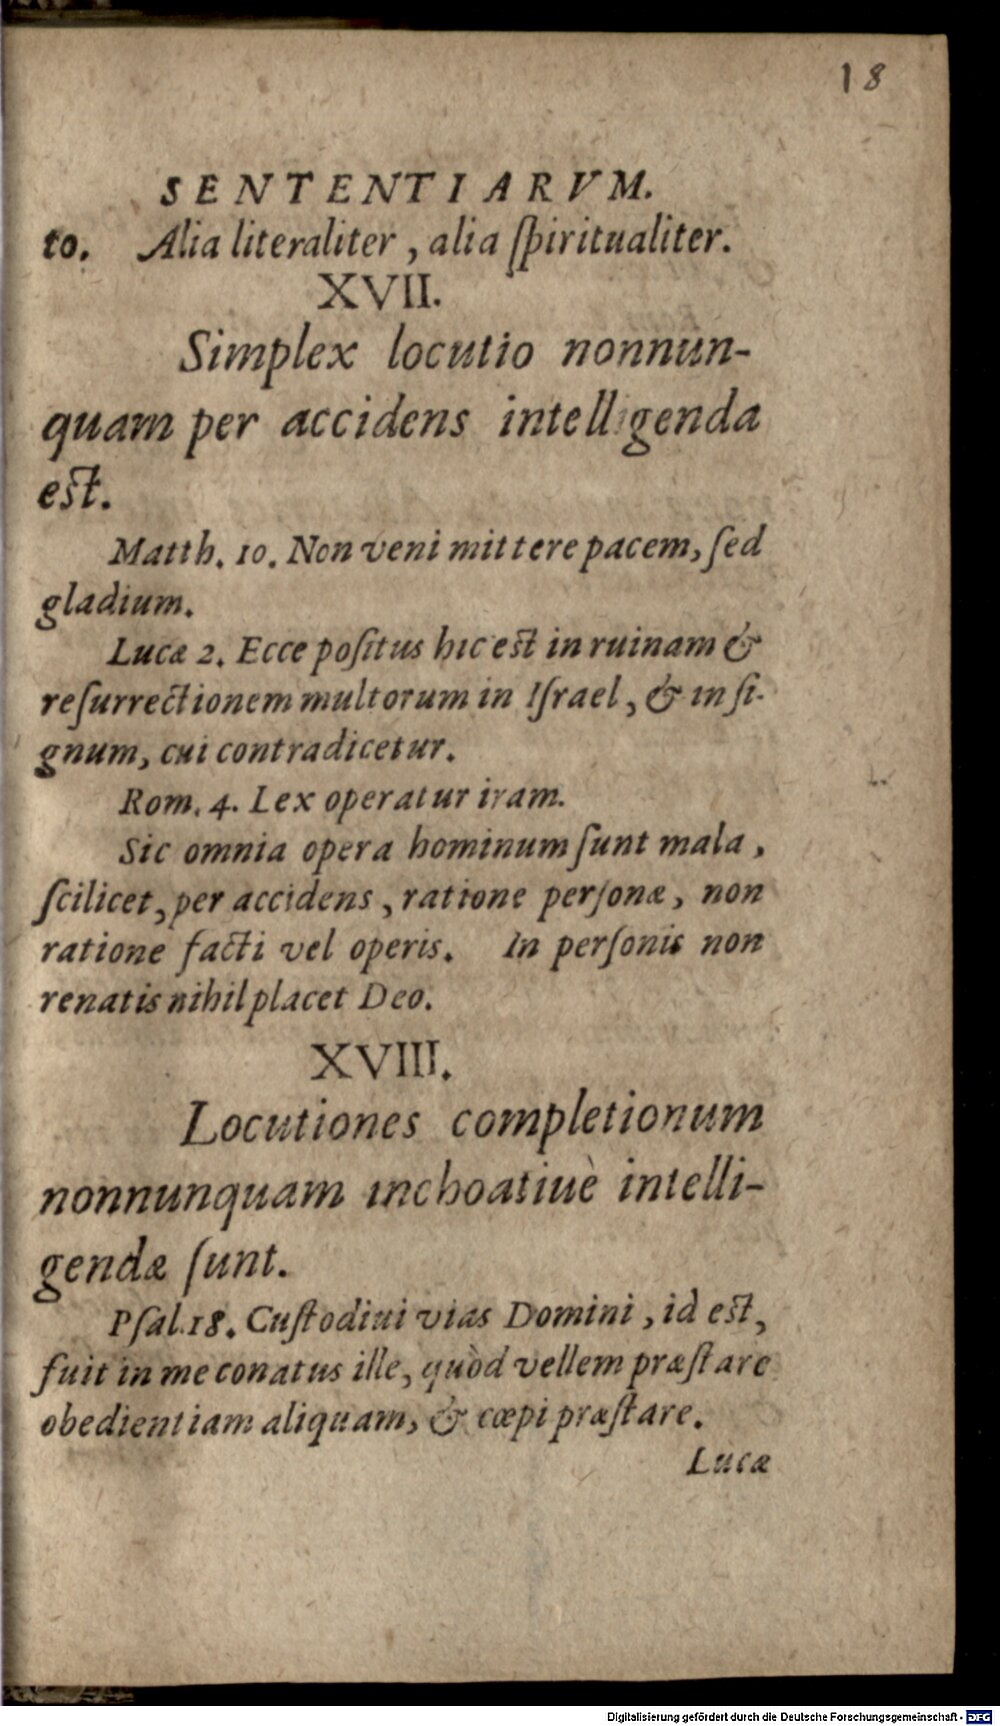 18
SENTENTIARVM.
to. Alia literaliter, alia ſpiritualiter.
XVII.
Simplex locutio nonnun-
quam per accidens intelligenda
eſt.
Matth. 10. Non veni mittere pacem, ſed
gladium.
Lucæ 2. Ecce poſitus hic eſt in ruinam &
reſurrectionem multorum in Iſrael, & in ſi-
gnum, cui contradicetur.
Rom. 4. Lex operatur iram.
Sic omnia opera hominum ſunt mala,
ſcilicet, per accidens, ratione perſonæ, non
ratione facti vel operis. In perſonis non
renatis nihil placet Deo.
XVIII.
Locutiones completionum
nonnunquam inchoatiuè intelli-
gendæ ſunt.
Pſal. 18. Cuſtodiui vias Domini, id eſt,
fuit in me conatus ille, quòd vellem præſtare
obedientiam aliquam, & cœpi præſtare.
Lucæ
Digitalisierung gefördert durch die Deutsche Forschungsgemeinschaft - DFG